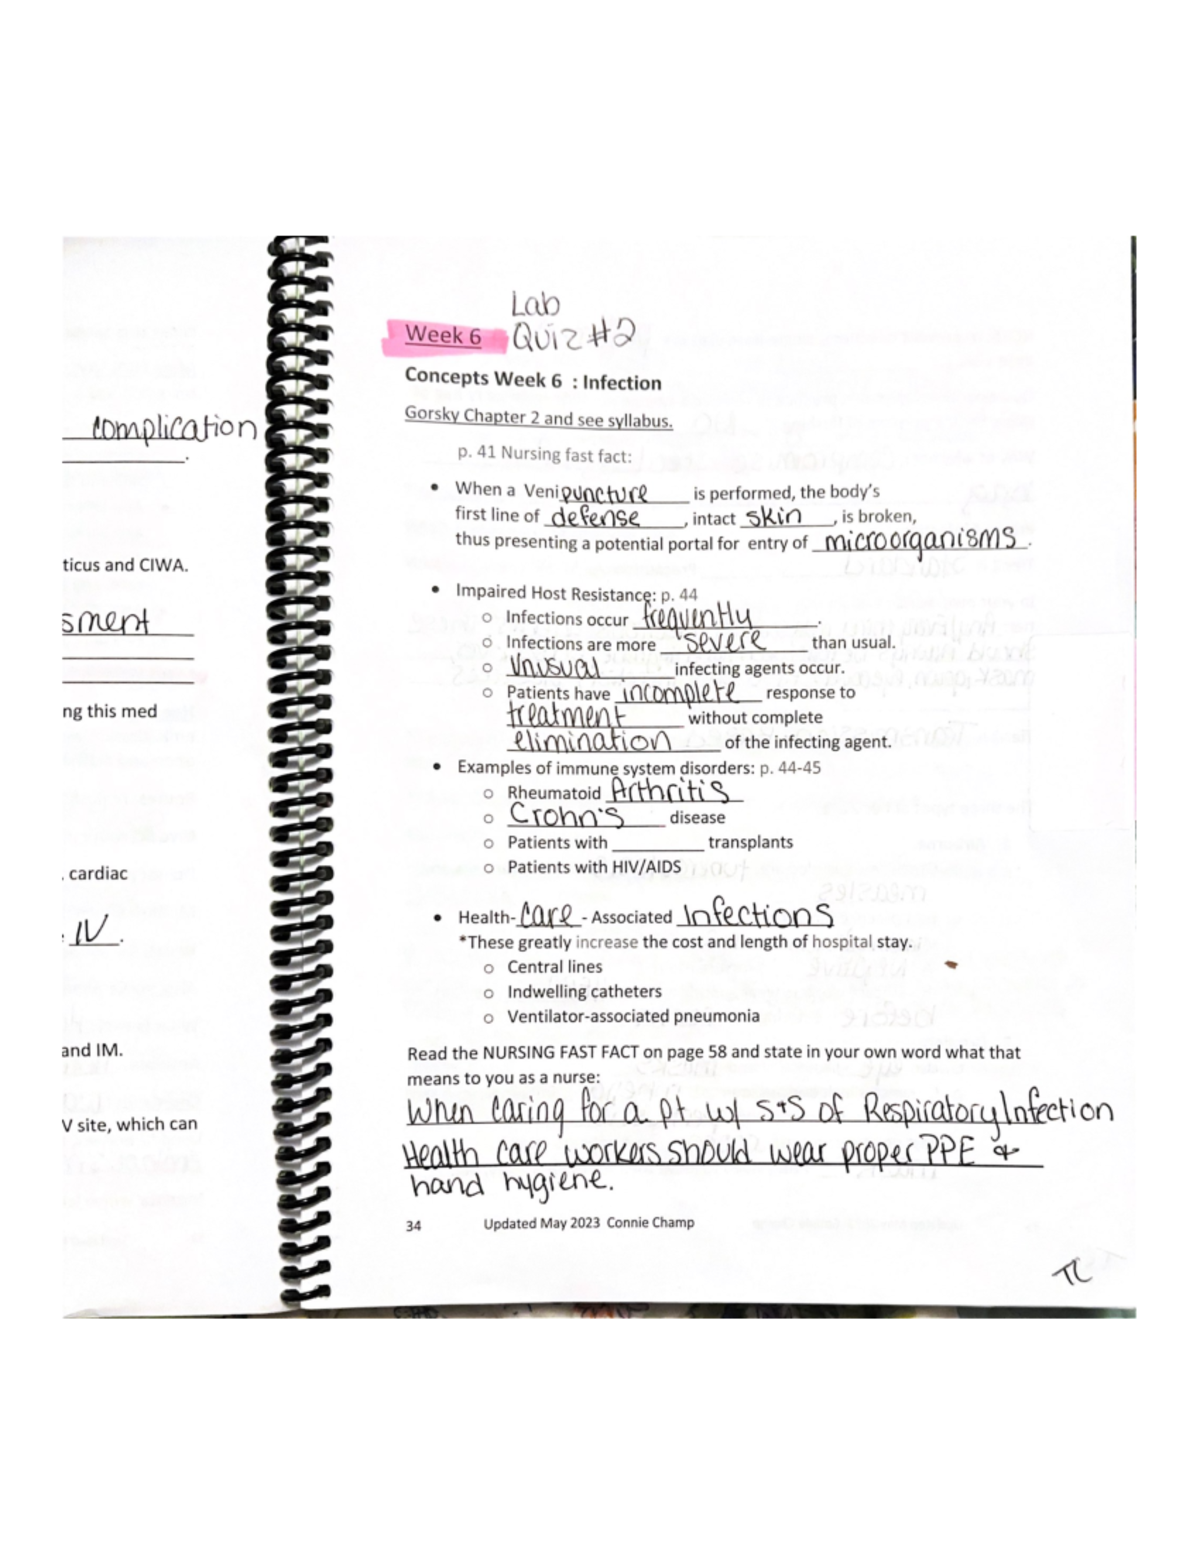 complication
.
ticus and CIWA.
sment
ng this med
, cardiac
IV.
and IM.
V site, which can
Lab
Week 6 Quiz #2
Concepts Week 6 : Infection
Gorsky Chapter 2 and see syllabus.
p. 41 Nursing fast fact:
• When a Venipuncture is performed, the body's
first line of defense, intact skin, is broken,
thus presenting a potential portal for entry of microorganisms.
• Impaired Host Resistance: p. 44
o Infections occur frequently.
o Infections are more severe than usual.
o Unusual infecting agents occur.
o Patients have incomplete response to
treatment without complete
elimination of the infecting agent.
• Examples of immune system disorders: p. 44-45
o Rheumatoid Arthritis
o Crohn's disease
o Patients with ________ transplants
o Patients with HIV/AIDS
• Health-care- Associated Infections
*These greatly increase the cost and length of hospital stay.
o Central lines
o Indwelling catheters
o Ventilator-associated pneumonia
Read the NURSING FAST FACT on page 58 and state in your own word what that
means to you as a nurse:
When caring for a pt w/ S+S of Respiratory Infection
Health care workers should wear proper PPE &
hand hygiene.
34 Updated May 2023 Connie Champ
TL